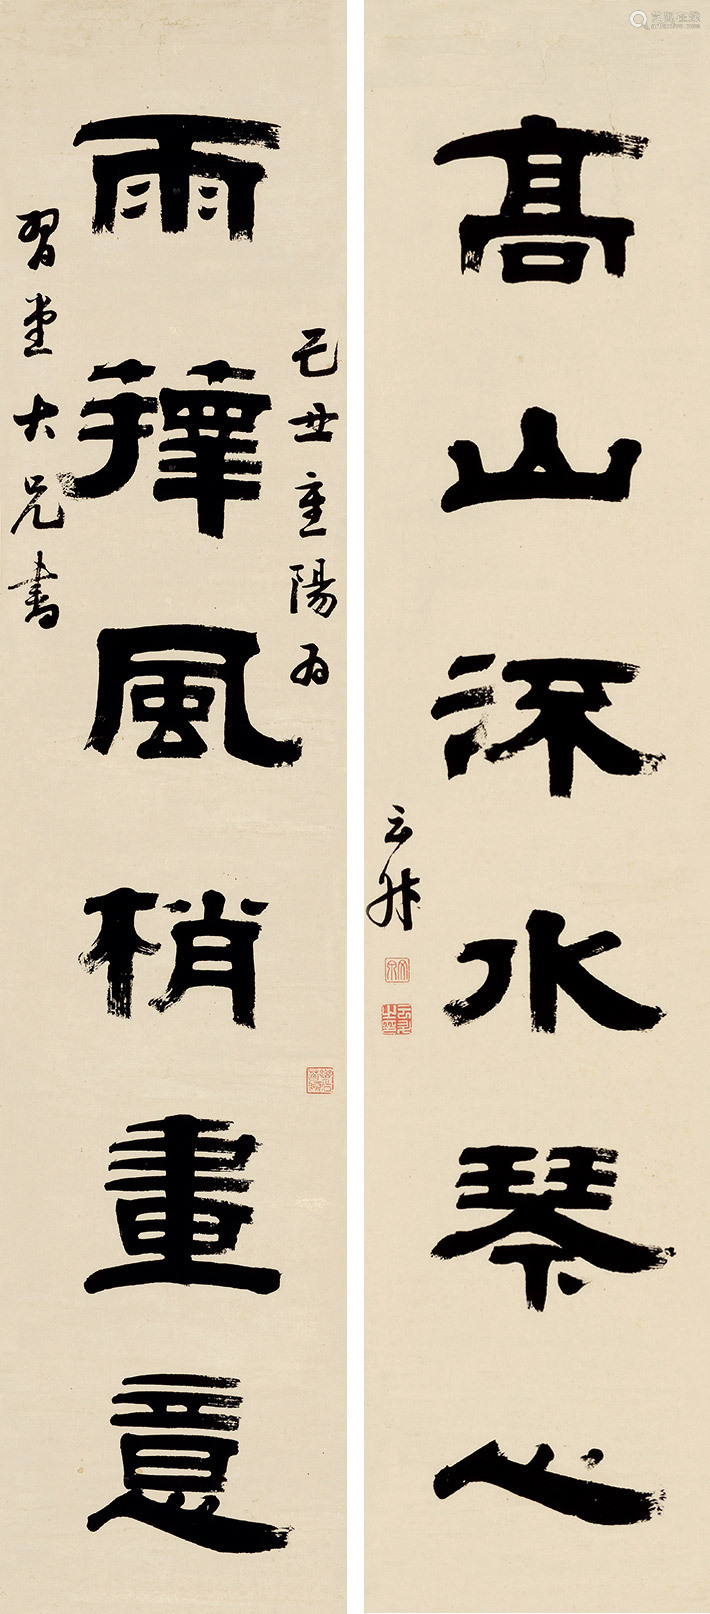 高山流水琴心
云升
己丑重陽为
雨籜風梢畫意
習堂大兄書